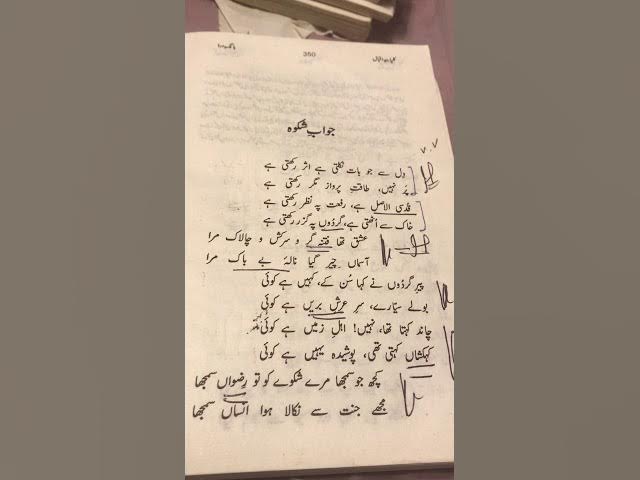 کلیاتِ اقبال
350
بانگِ درا
جوابِ شکوہ
دل سے جو بات نکلتی ہے اثر رکھتی ہے
پر نہیں، طاقتِ پرواز مگر رکھتی ہے
قدسی الاصل ہے، رفعت پہ نظر رکھتی ہے
خاک سے اُٹھتی ہے، گردُوں پہ گزر رکھتی ہے
عشق تھا فتنہ گر و سرکش و چالاک مرا
آسماں چیر گیا نالۂ بے باک مرا
پیرِ گردُوں نے کہا سُن کے، کہیں ہے کوئی
بولے سیّارے، سرِ عرشِ بریں ہے کوئی
چاند کہتا تھا، نہیں! اہلِ زمیں ہے کوئی
کہکشاں کہتی تھی، پوشیدہ یہیں ہے کوئی
کچھ جو سمجھا مرے شکوے کو تو رِضواں سمجھا
مجھے جنت سے نکالا ہوا انساں سمجھا